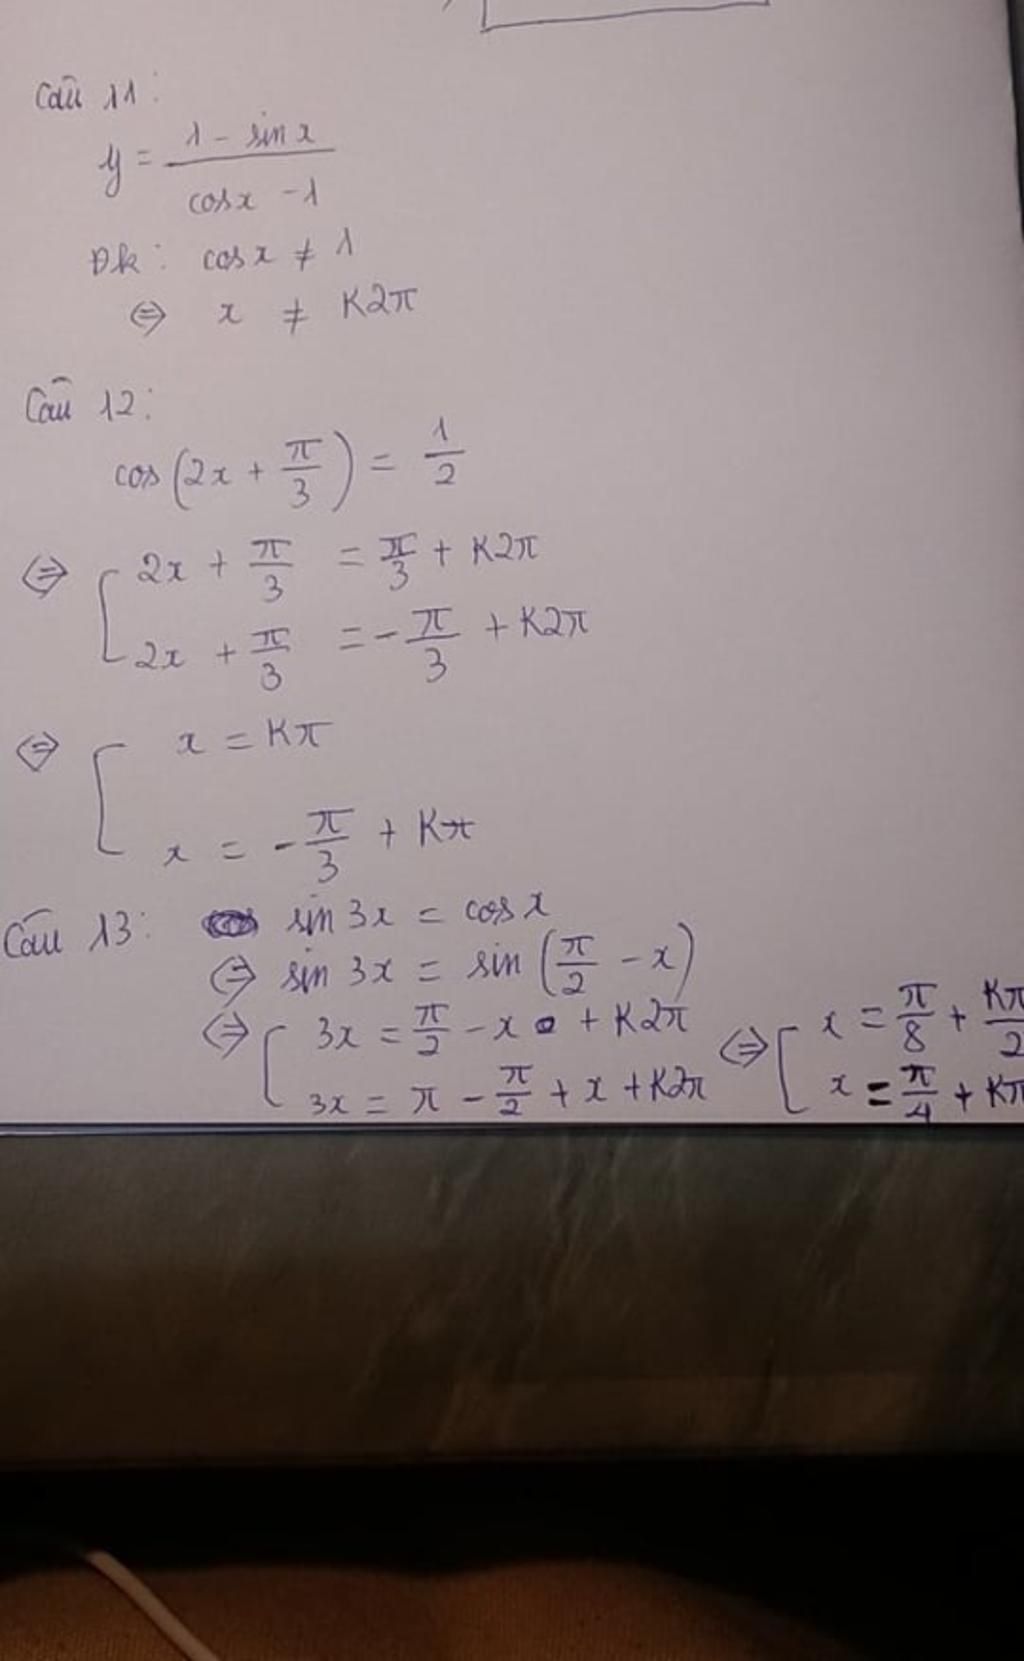 Câu 11:
y = \frac{1 - sin x}{cos x - 1}
Đk: cos x ≠ 1
⇔ x ≠ K2π
Câu 12:
cos(2x + \frac{π}{3}) = \frac{1}{2}
⇔ [ 2x + \frac{π}{3} = \frac{π}{3} + K2π
2x + \frac{π}{3} = -\frac{π}{3} + K2π
⇔ [ x = Kπ
x = -\frac{π}{3} + Kπ
Câu 13: sin 3x = cos x
⇔ sin 3x = sin(\frac{π}{2} - x)
⇔ [ 3x = \frac{π}{2} - x + K2π ⇔ [ x = \frac{π}{8} + \frac{Kπ}{2}
3x = π - \frac{π}{2} + x + K2π x = \frac{π}{4} + Kπ